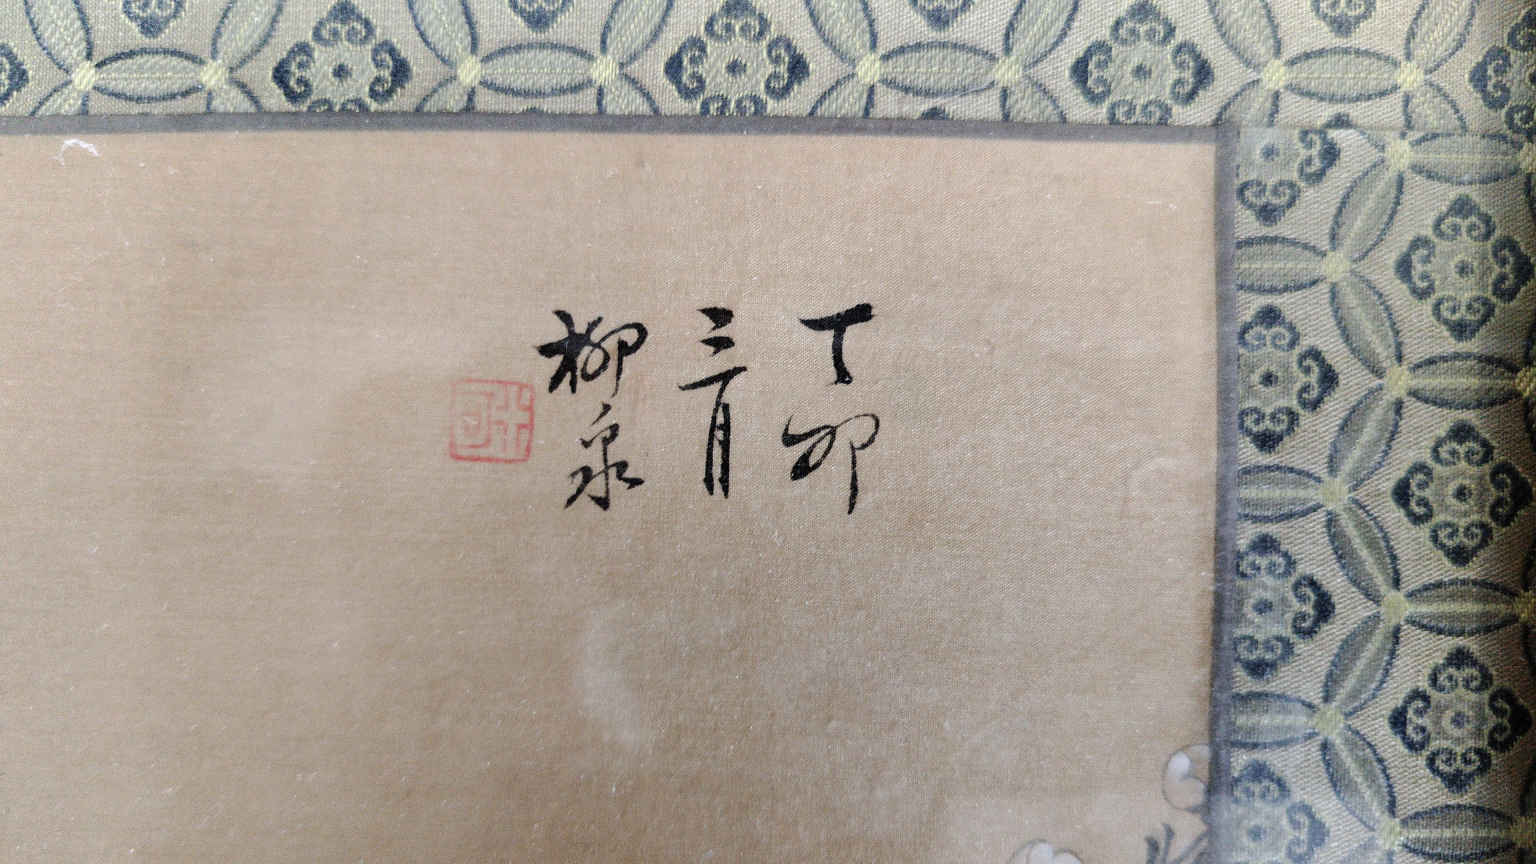 丁卯
三月
柳泉